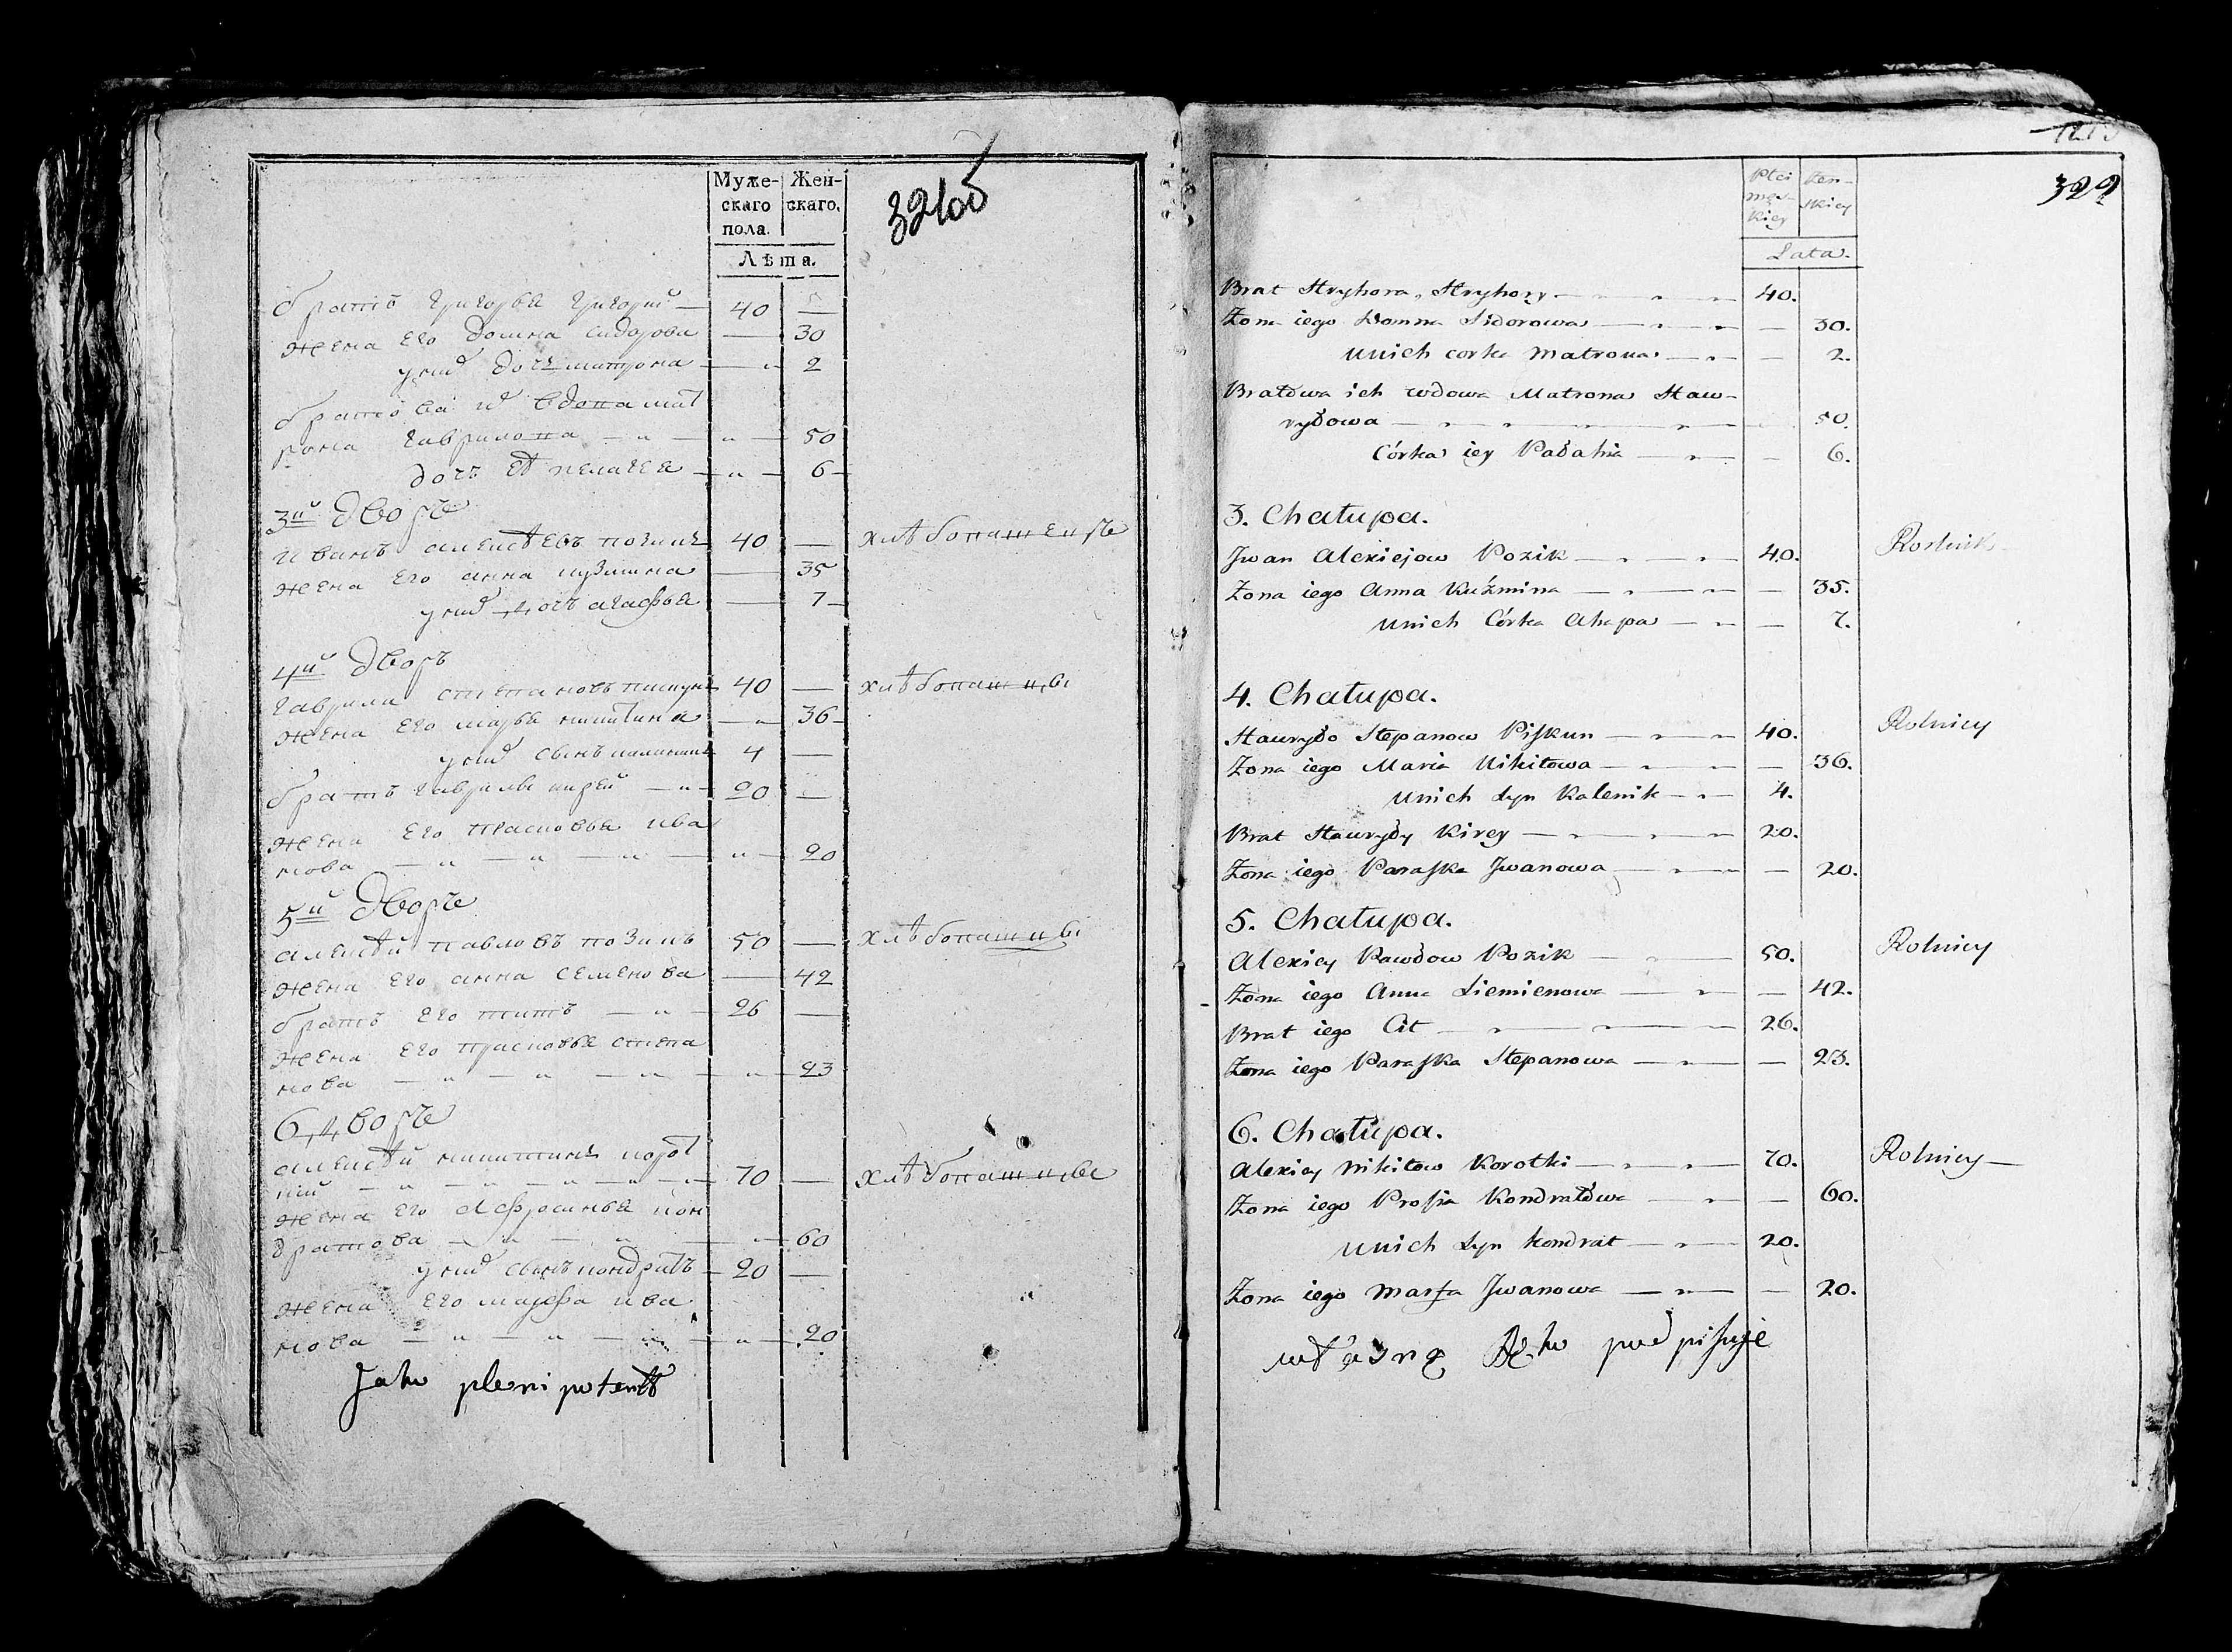 Муже-
скаго
пола.
Жен-
скаго.
Лѣта.
321об
братъ григорья григорий — 40 —
жена его домна сидорова — 30
у них дочь матрона — " 2
братова их вдова мат
рона гаврилова — " — " — 50
дочь её пелагея — " — 6
3й дворъ
иванъ алексѣевъ позикъ 40 — хлѣбопашецъ
жена его анна кузмина — 35
у них дочь агафья — 7
4й дворъ
гаврила степановъ пискунъ 40 — хлѣбопашцы
жена его марья никитина — " 36
у них сынъ калиникъ 4 —
братъ гаврилы кирей — " 20 —
жена его прасковья ива
нова — " — " — " — " — 20
5й дворъ
алексѣй павловъ позикъ 50 — хлѣбопашцы
жена его анна семенова — 42
братъ его титъ — " 26 —
жена его прасковья степа
нова — " — " — " — " — 23
6 дворъ
алексѣй никитинъ корот
кий — " — " — " — " 70 — хлѣбопашцы
жена его афросинья кон
дратова — " — " — " 60
у них сынъ кондратъ 20 —
жена его марфа ива
нова — " — " — " — " — 20
Jako plenipotent
1213
322
Płci
męs-
kiey
żen-
skiey
Lata.
Brat Hryhora, Hryhory — " — " — 40.
Żona iego Domna Sidorowa — " — " — 30.
Unich corka Matrona — " — 2.
Bratowa ich wdowa Matrona Haw-
ryłowa — " — " — " — 50.
Córka iey Pałahia — " — 6.
3. Chałupa.
Jwan Alexiejow Pozik — " — " — 40. Rolnik
Żona iego Anna Kuźmina — " — " — 35.
Unich Córka Ahapa — " — 7.
4. Chałupa.
Hawryło Stepanow Piskun — " — " 40. Rolnicy
Żona iego Maria Nikitowa — " — " — 36.
Unich Syn Kalenik — " — 4.
Brat Hawryły Kirey — " — " — 20.
Żona iego Paraska Jwanowa — " — " — 20.
5. Chałupa.
Alexiey Pawłow Pozik — " — 50. Rolnicy
Żona iego Anna Siemienowa — " — — 42.
Brat iego Cit — " — " — 26.
Żona iego Paraska Stepanowa — " — — 23.
6. Chałupa.
Alexiey Nikitow Korotki — " — " — 70. Rolnicy —
Żona iego Prosia Kondratowa — " — — 60.
Unich Syn Kondrat — " — 20.
Żona iego Marta Jwanowa — " — — 20.
własną Ręko podpisuje